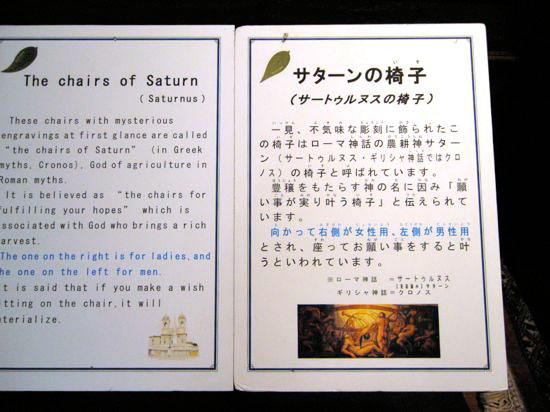 The chairs of Saturn
(Saturnus)
These chairs with mysterious
engravings at first glance are called
"the chairs of Saturn" (in Greek
myths, Cronos), God of agriculture in
Roman myths.
It is believed as "the chairs for
fulfilling your hopes" which is
associated with God who brings a rich
harvest.
The one on the right is for ladies, and
the one on the left for men.
It is said that if you make a wish
sitting on the chair, it will
materialize.
サターンの椅子
(サートゥルヌスの椅子)
一見、不気味な彫刻に飾られたこ
の椅子はローマ神話の農耕神サター
ン(サートゥルヌス・ギリシャ神話ではクロ
ノス)の椅子と呼ばれています。
豊穣をもたらす神の名に因み「願
い事が実り叶う椅子」と伝えられて
います。
向かって右側が女性用、左側が男性用
とされ、座ってお願い事をすると叶
うといわれています。
※ローマ神話 =サートゥルヌス
サターン
ギリシャ神話=クロノス